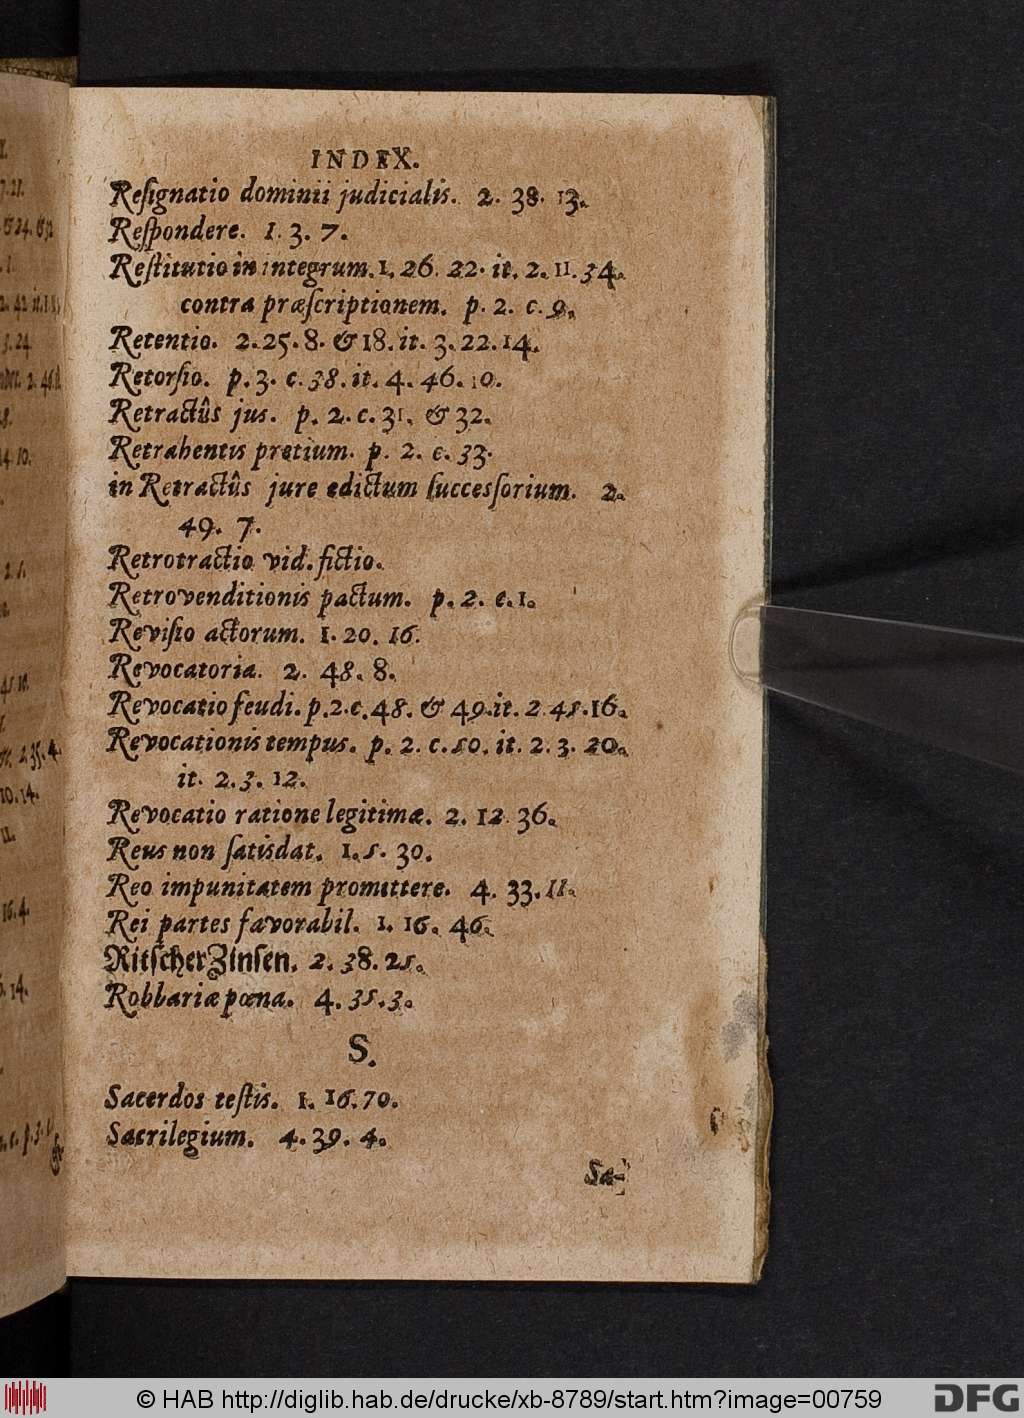 INDEX.
Reſignatio dominii judicialis. 2. 38. 13.
Reſpondere. 1. 3. 7.
Reſtitutio in integrum. 1. 26. 22. it. 2. 11. 34.
contra præſcriptionem. p. 2. c. 9.
Retentio. 2. 25. 8. & 18. it. 3. 22. 14.
Retorſio. p. 3. c. 38. it. 4. 46. 10.
Retractûs jus. p. 2. c. 31. & 32.
Retrahentis pretium. p. 2. c. 33.
in Retractûs jure edictum ſucceſſorium. 2.
49. 7.
Retrotractio vid. fictio.
Retrovenditionis pactum. p. 2. c. 1.
Reviſio actorum. 1. 20. 16.
Revocatoria. 2. 48. 8.
Revocatio feudi. p. 2. c. 48. & 49. it. 2. 45. 16.
Revocationis tempus. p. 2. c. 50. it. 2. 3. 20.
it. 2. 3. 12.
Revocatio ratione legitimæ. 2. 12. 36.
Reus non ſatisdat. 1. 5. 30.
Reo impunitatem promittere. 4. 33. 11.
Rei partes favorabil. 1. 16. 46.
RitſcherZinſen. 2. 38. 25.
Robbariæ pœna. 4. 35. 3.
S.
Sacerdos teſtis. 1. 16. 70.
Sacrilegium. 4. 39. 4.
Sa-
© HAB http://diglib.hab.de/drucke/xb-8789/start.htm?image=00759
DFG